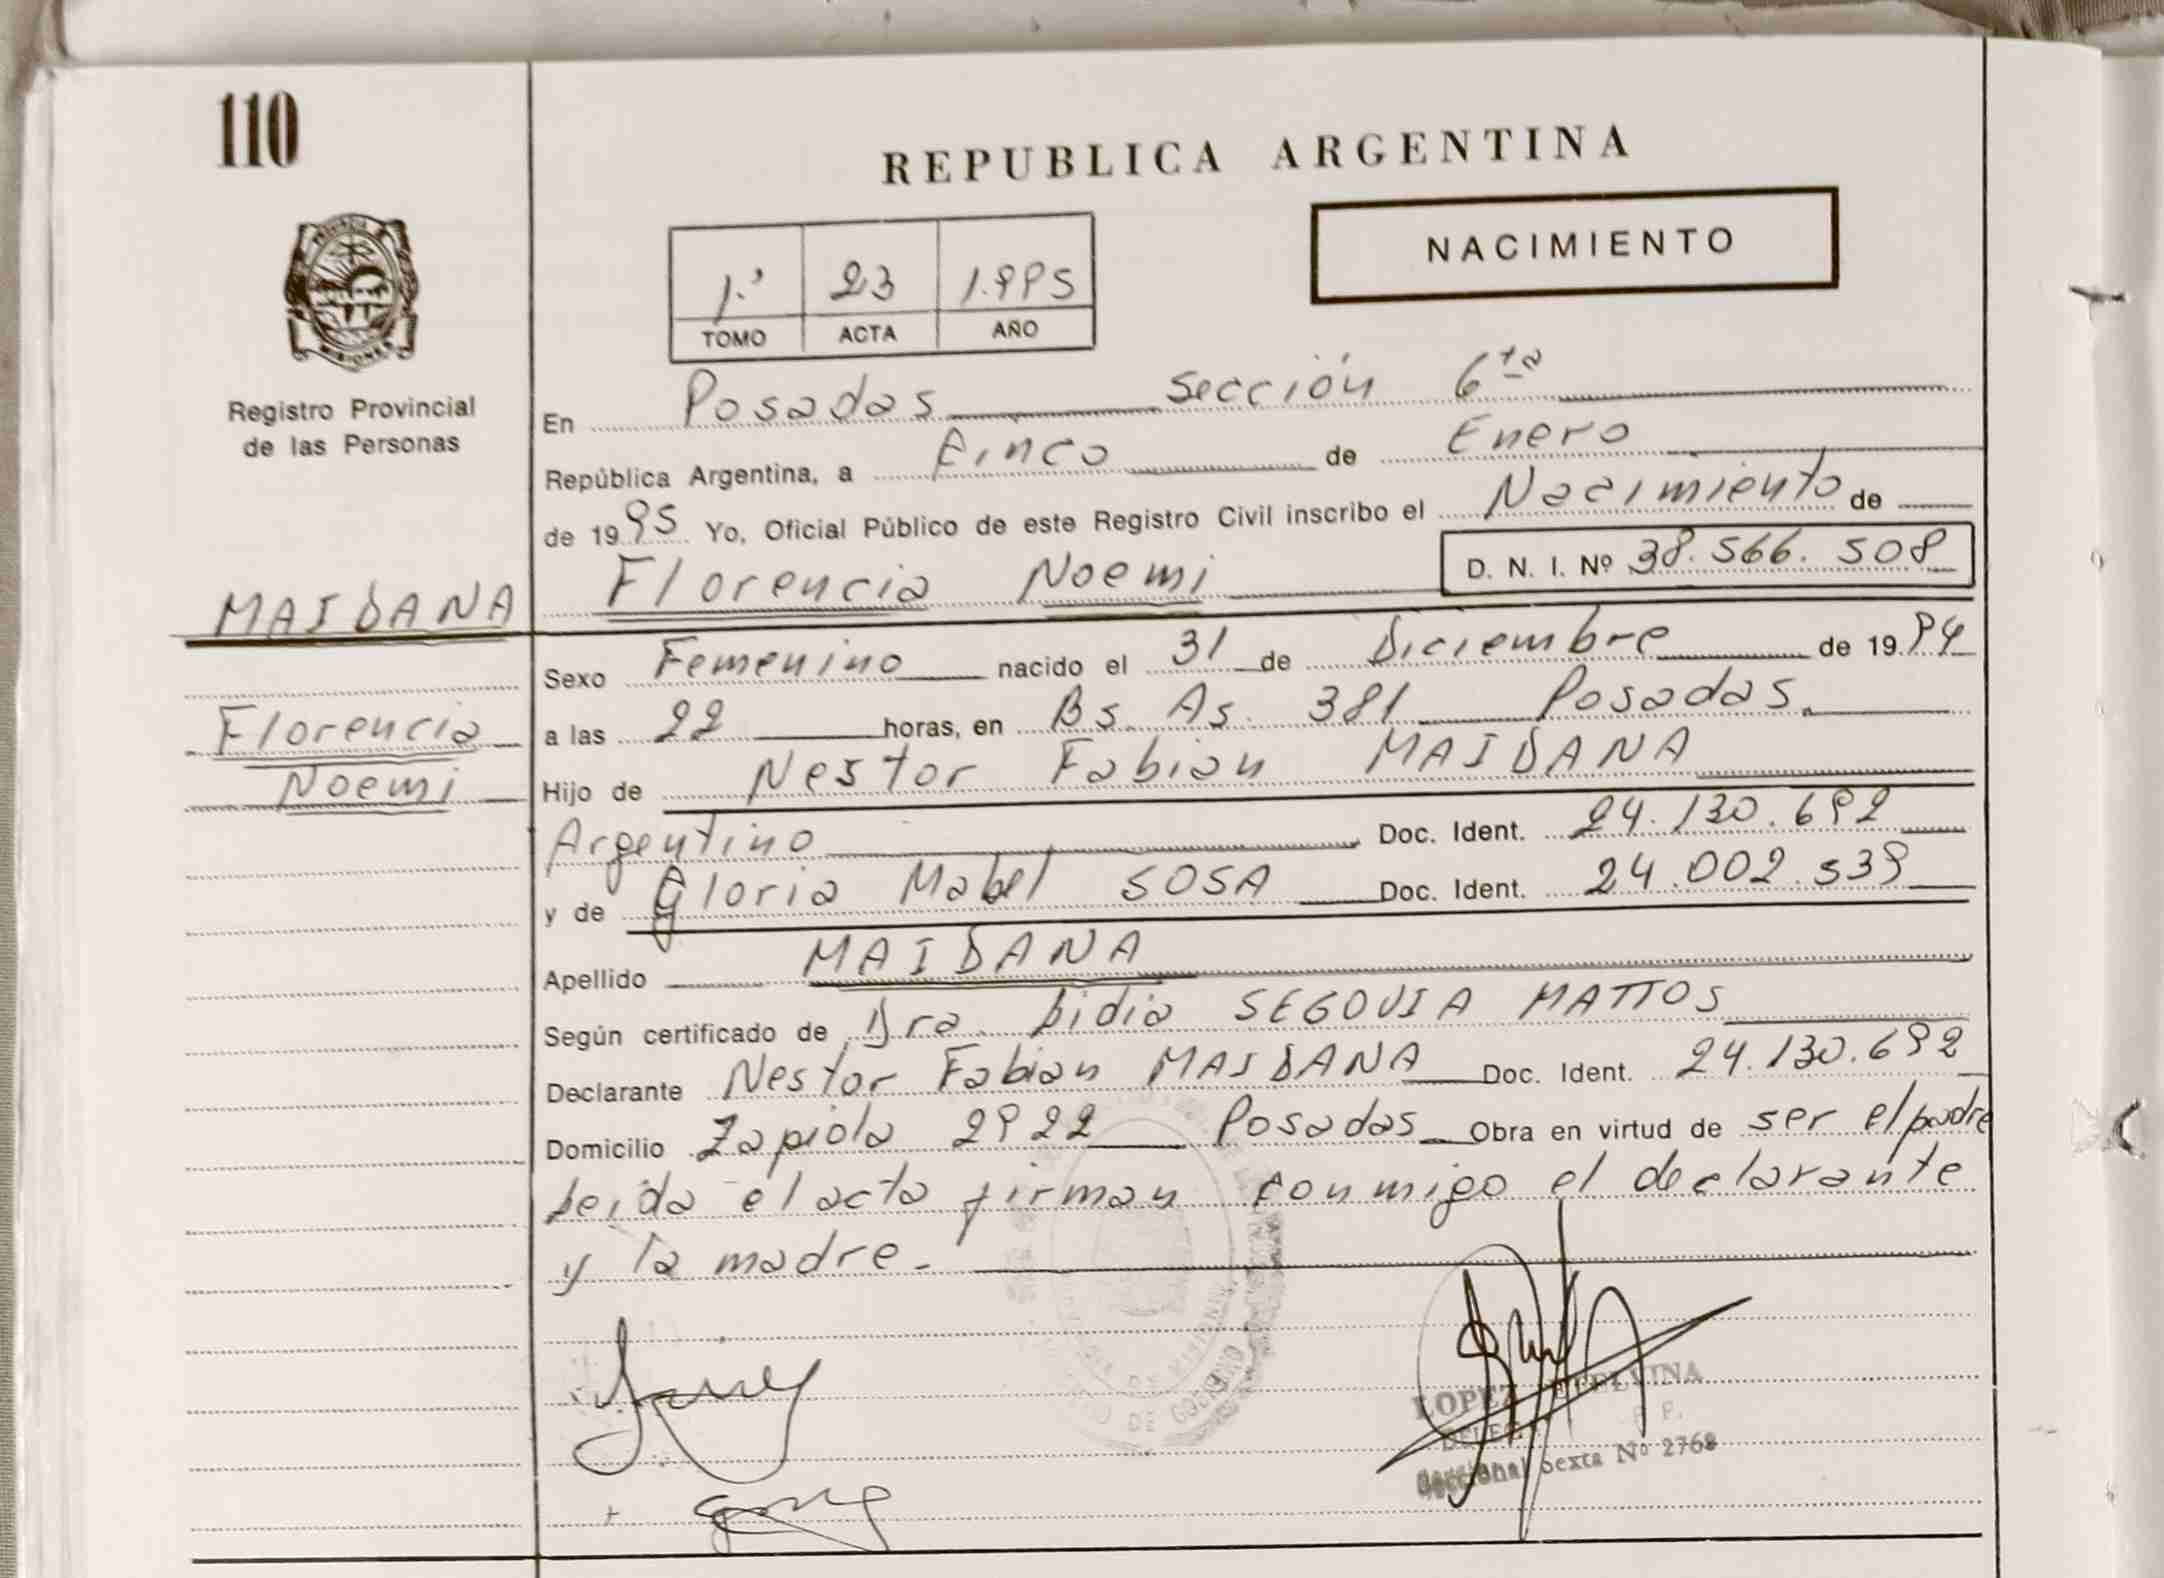 110
REPUBLICA ARGENTINA
PROVINCIA
MISIONES
Registro Provincial
de las Personas
1º 23 1.995
TOMO ACTA AÑO
NACIMIENTO
En Posadas sección 6ta
República Argentina, a Cinco de Enero
de 1995 Yo, Oficial Público de este Registro Civil inscribo el Nacimiento de
MAIDANA
Florencia Noemi D. N. I. Nº 38.566.508
Sexo Femenino nacido el 31 de Diciembre de 1994
Florencia
a las 22 horas, en Bs. As. 381 Posadas.
Noemi
Hijo de Nestor Fabian MAIDANA
Argentino Doc. Ident. 24.130.692
y de Gloria Mabel SOSA Doc. Ident. 24.002.539
Apellido MAIDANA
Según certificado de Dra. Lidia SEGOVIA MATTOS
Declarante Nestor Fabian MAIDANA Doc. Ident. 24.130.692
Domicilio Zapiola 2922 Posadas Obra en virtud de ser el padre
Leida el acta firman conmigo el declarante
y la madre.
DE MISIONES
DE GOBIERNO
LOPEZ
Seccional Sexta Nº 2768